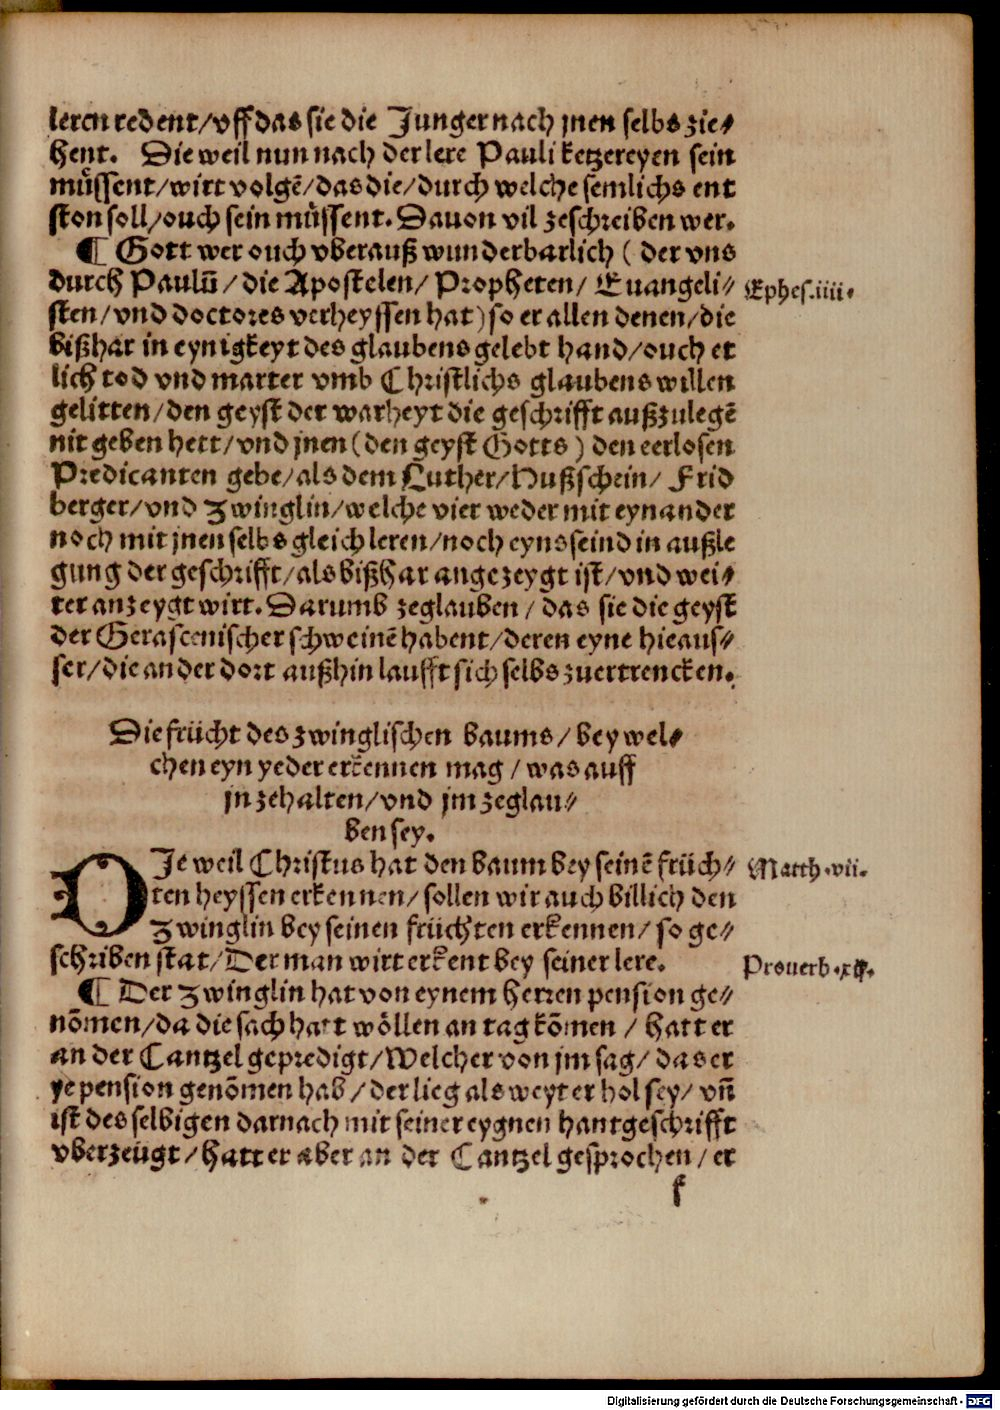 leren redent/vff das sie die Junger nach jnen selbs zie⸗
hent. Die weil nun nach der lere Pauli ketzereyen sein
müssent/wirt volgē/das die/durch welche semlichs ent
ston soll/ouch sein müssent. Dauon vil zeschreiben wer.
¶ Gott wer ouch vberauß wunderbarlich ( der vns
durch Paulū/die Apostelen/Propheten/Euangeli⸗
Ephes.iiii.
sten/vnd doctores verheyssen hat) so er allen denen/die
bißhar in eynigkeyt des glaubens gelebt hand/ouch et
lich tod vnd marter vmb Christlichs glaubens willen
gelitten/den geyst der warheyt die geschrifft außzulegē
nit geben hett/vnd jnen (den geyst Gotts) den eerlosen
Predicanten gebe/als dem Luther/Hußschein/Frid
berger/vnd Zwinglin/welche vier weder mit eynander
noch mit jnen selbs gleich leren/noch eyns seind in außle
gung der geschrifft/als bißhar angezeygt ist/vnd wei⸗
ter anzeygt wirt. Darumb zeglauben/das sie die geyst
der Gerascenischer schweinē habent/deren eyne hie aus⸗
ser/die ander dort außhin laufft sich selbs zuertrencken.
Die frücht des zwinglischen baums/bey wel⸗
chen eyn yeder erkennen mag/was auff
jn zehalten/vnd jm zeglau⸗
ben sey.
DJe weil Christus hat den baum bey seinē früch⸗
Matth.vii.
ten heyssen erkennen/sollen wir auch billich den
Zwinglin bey seinen früchten erkennen/so ge⸗
schriben stat/Der man wirt erkent bey seiner lere.
Prouerb.xij.
¶ Der Zwinglin hat von eynem herren pension ge⸗
nōmen/da die sach hatt wöllen an tag kōmen/hatt er
an der Cantzel gepredigt/Welcher von jm sag/das er
ye pension genōmen hab/der lieg als weyt er hol sey/vñ
ist des selbigen darnach mit seiner eygnen hantgeschrifft
vberzeugt/hatt er aber an der Cantzel gesprochen/er
k
Digitalisierung gefördert durch die Deutsche Forschungsgemeinschaft - DFG